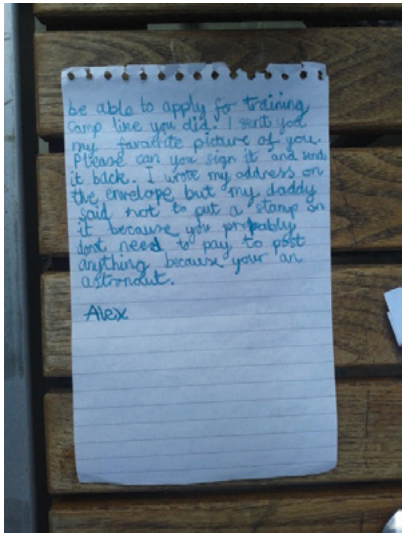 be able to apply for training
camp like you did. I sent you
my favarite picture of you.
Please can you sign it and send
it back. I wrote my address on
the envelope but my daddy
said not to put a stamp on
it because you probably
dont need to pay to post
anything because your an
astronaut.
Alex